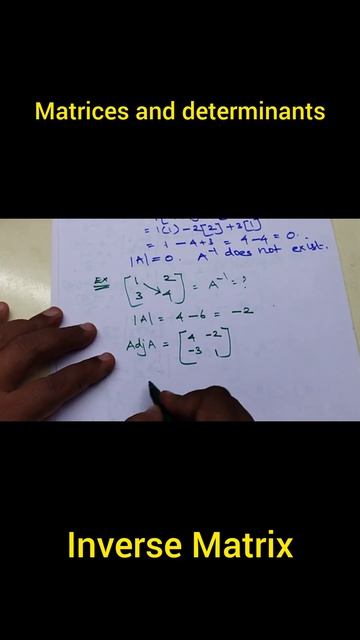 Matrices and determinants
= 1(1) - 2[2] + 3[1]
= 1 - 4 + 3 = 4 - 4 = 0.
|A| = 0. A⁻¹ does not exist.
Ex [1 2
3 4] = A⁻¹ = ?
|A| = 4 - 6 = -2
Adj A = [4 -2
-3 1]
Inverse Matrix